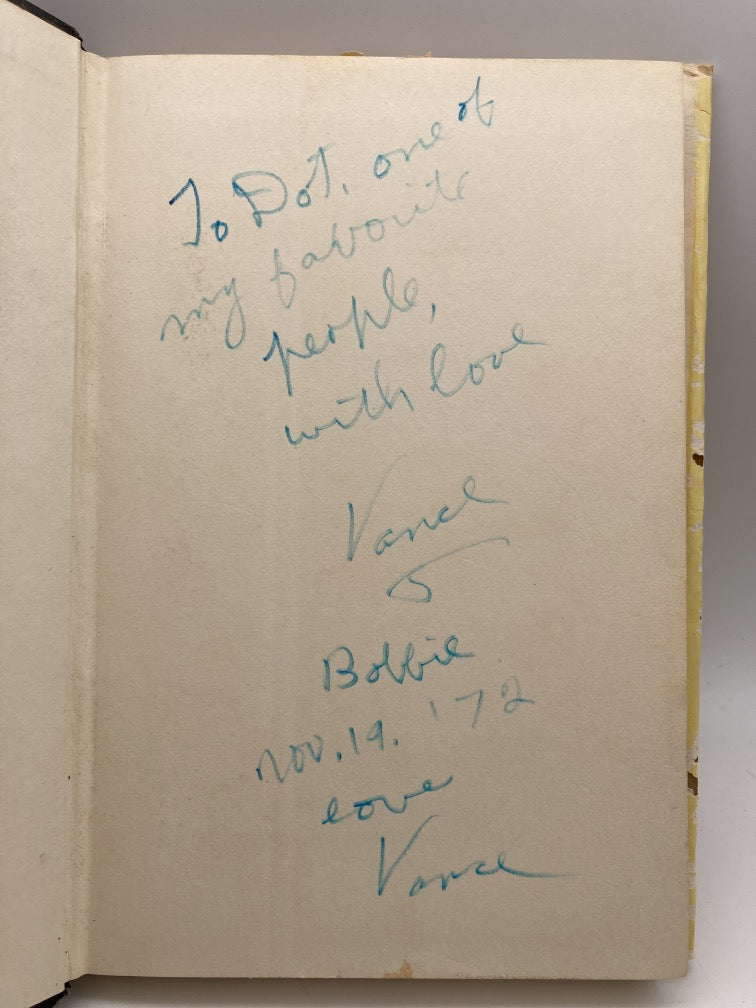 To Dot, one of
my favorite
people,
with love
Vance
Bobbie
Nov. 19. '72
love
Vance